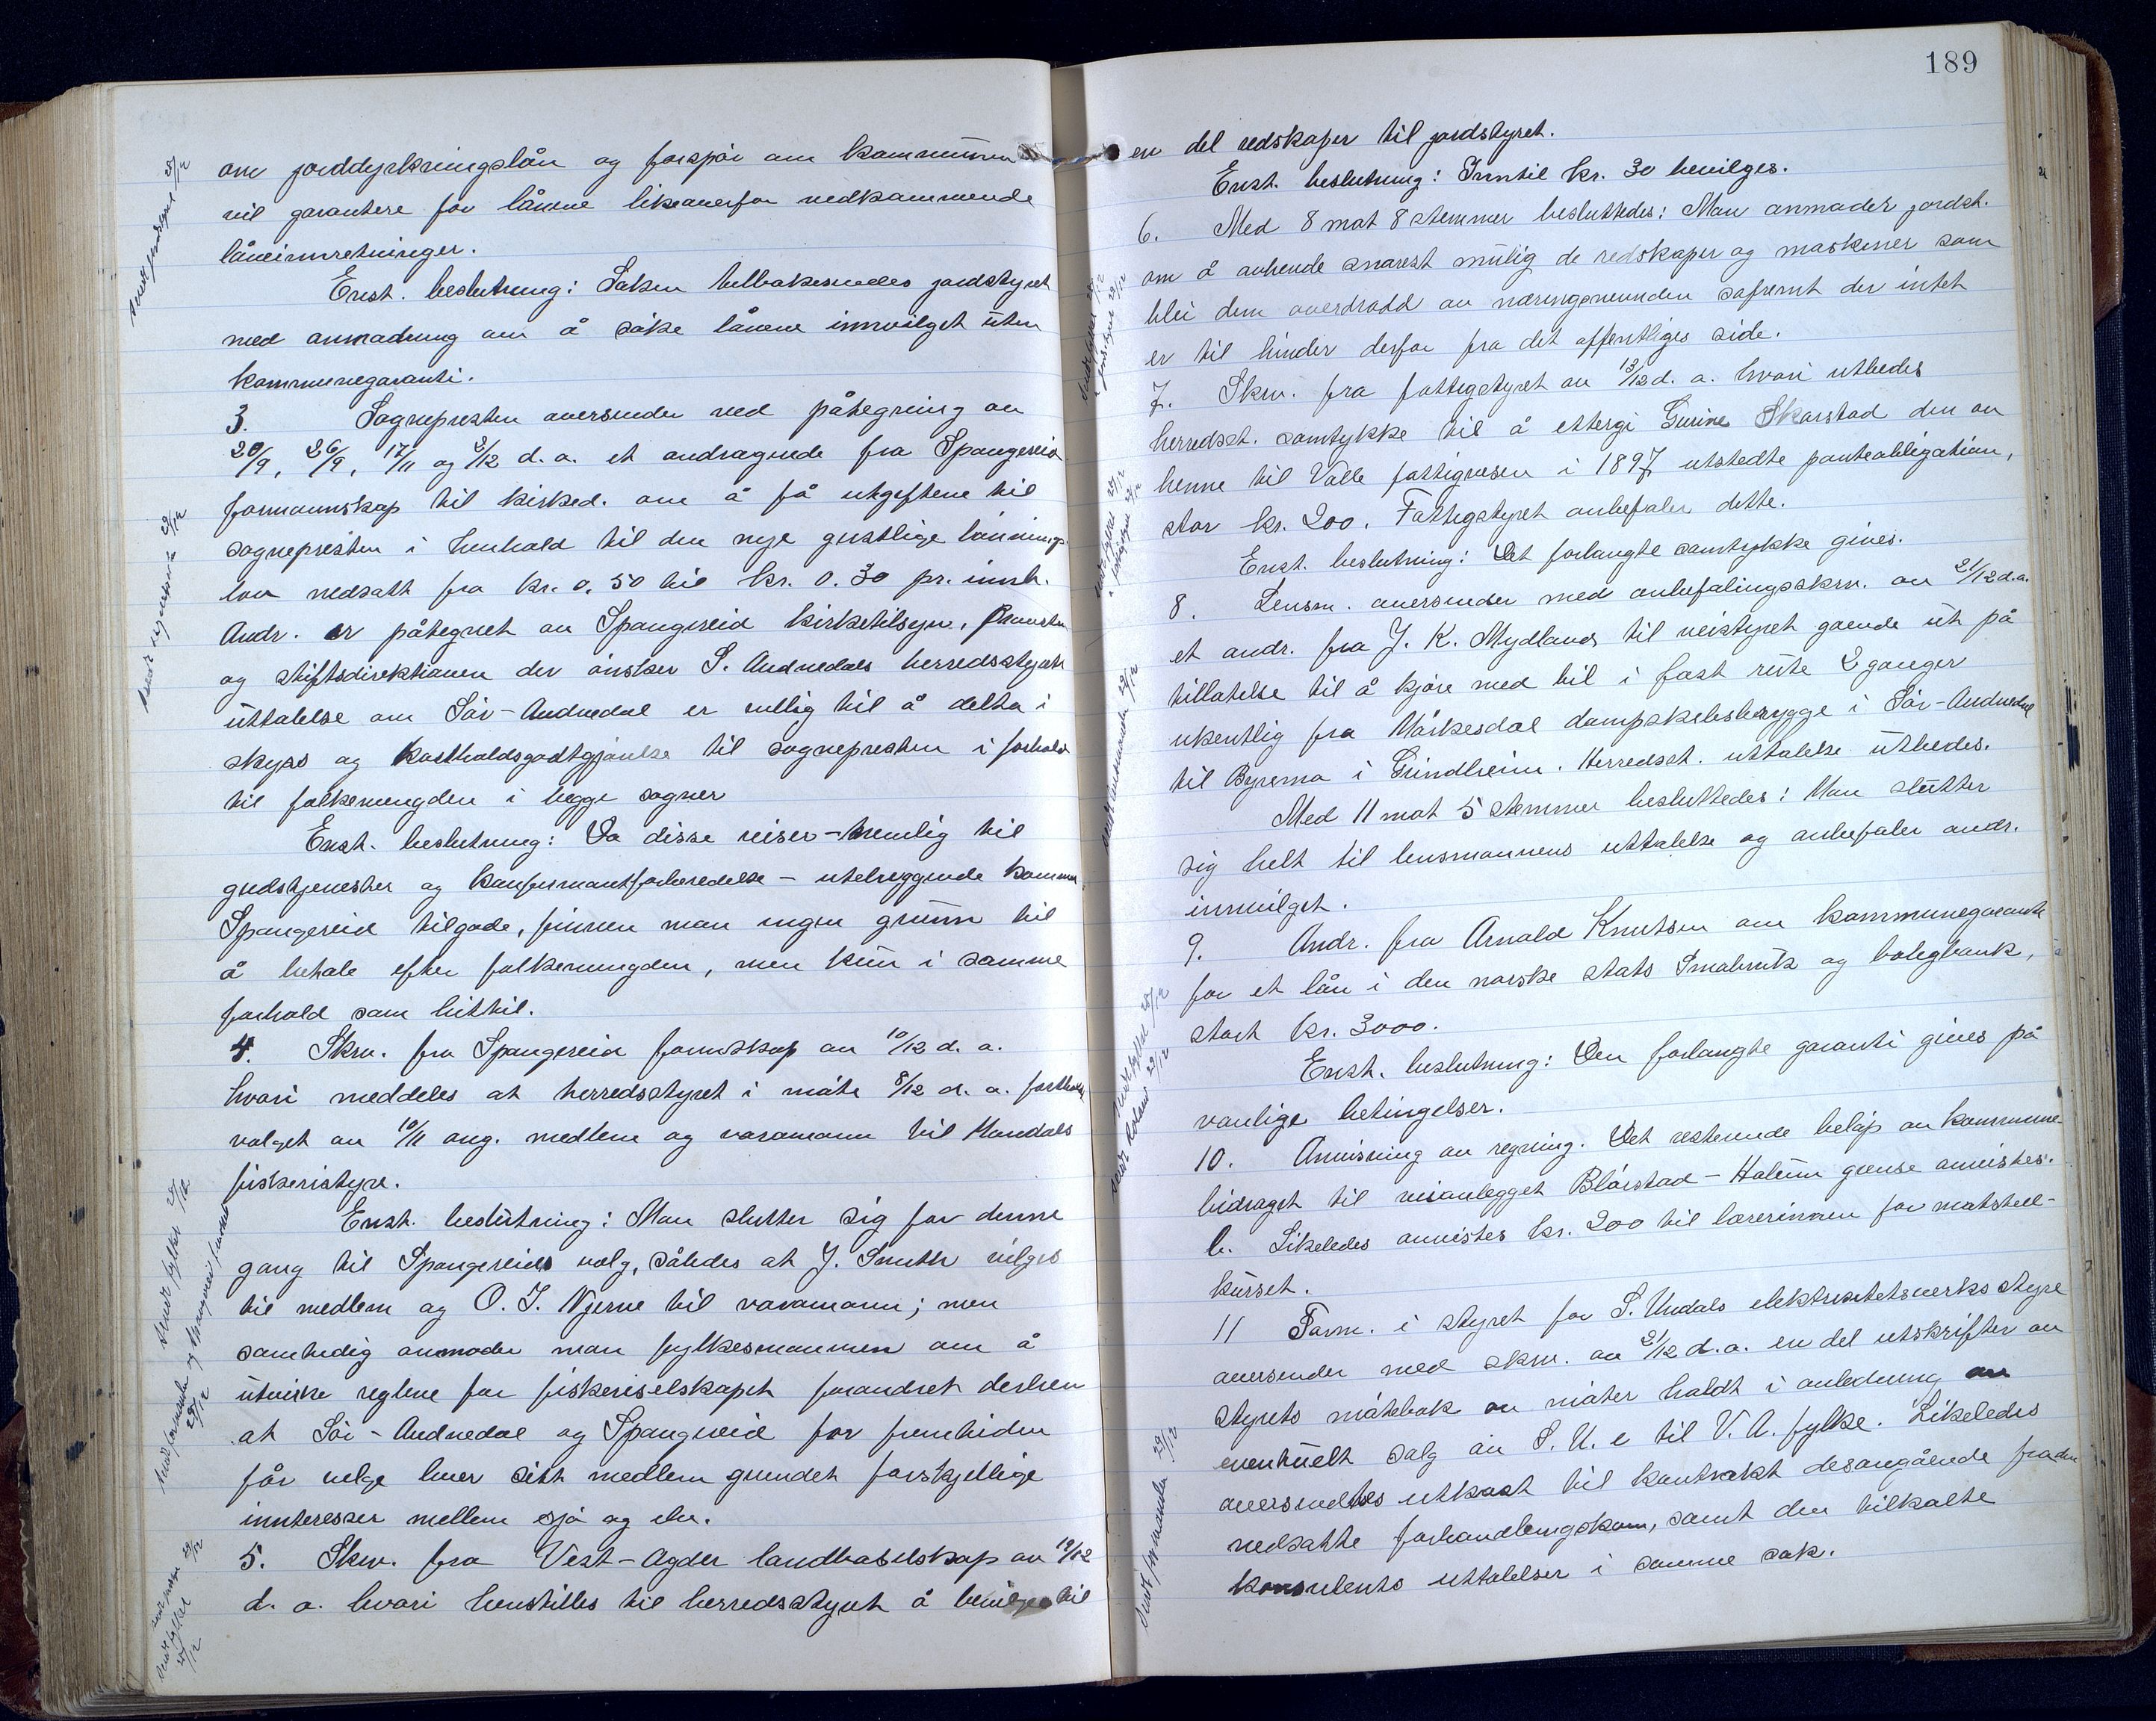 om jorddyrkningslån og forspör om kommunen
vil garantere for lånene likeoverfor vedkommende
låneinnretninger.
Enst. beslutning: Saken tilbakesendes jordstyret
med anmodning om å søke lånene innvilget üten
kommunegaranti.
3. Sogneprésten oversender med påtegning av
20/9, 26/9, 17/11 og 2/12 d. a. et andragende fra Spangereid
formannskap til kirked. om å få utgiftene til
sognepresten i henhold til den nye geistlige lönnings-
lov nedsatt fra kr. 0,50 til kr. 0.30 pr. innb.
Andr. er påtegnet av Spangereid kirketilsyn, Prousten
og stiftsdirektionen der önsker S. Audnedals herredsstyrets
üttalelse om Sör-Audnedal er villig til å delta i
skyss og kostholdsgodtgjörelse til sognepresten i forhold
til folkemengden i begge sogner
Enst. beslutning: Da disse reiser - nemlig til
gudstjenester og konfirmantforberedelse - utelukkende kommer
Spangereid tilgode, finner man ingen grünn til
å betale efter folkemengden, men kün i samme
forhold som hittil.
4. Skriv. fra Spangereid formskap av 10/12 d. a.
hvori meddeles at herredsstyret i möte 8/12 d. a. fortok
valget av 10/11 ang. medlem og varamann til Mandals
fiskeristyre.
Enst. beslütning: Man slutter sig for denne
gang til Spangereids valg, således at J. Smith velges
til medlem og O. T. Njerve til varamann; men
samtidig anmoder man fylkesmannen om å
ütvirke reglene for fiskeriselskapet forandret derhen
at Sör-Audnedal og Spangereid for fremtiden
får velge hver sitt medlem grundet forskjellige
innteresser mellem sjö og elv.
5. Skriv. fra Vest-Agder landbruselskap av 19/12
d. a. hvori henstilles til herredsstyret å bevilge til
Sendt jordstyret 29/12
Sendt sognepresten 29/12
Sendt fylket 29/12
Sendt formannsk. og Spangereid formannskap 29/12
189
en del redskaper til jordstyret.
Enst. beslutning: Inntil kr. 30 bevilges.
6. Med 8 mot 8 stemmer besluttedes: Man anmoder jordst.
om å avhende snarest mülig de redskaper og maskiner som
blei dem overdradd av næringsnevnden såfremt der intet
er til hinder derfor fra det offentliges side.
7. Skriv. fra fattigstyret av 13/12 d. a. hvori utbedes
herredsst. samtykke til å ettergi Gurine Skarstad den av
henne til Valle fattigvesen i 1897 utstedte panteobligation,
stor kr. 200. Fattigstyret anbefaler dette.
Enst. beslutning: Det forlangte samtykke gives.
8. Lensm. oversender med anbefalingsskriv. av 21/12 d.a.
et andr. fra J. K. Mydland til veistyret gående üt på
tillatelse til å kjöre med bil i fast rüte 2 ganger
ukentlig fra Mörkesdal dampskibsbrygge i Sör-Audnedal
til Byremo i Grindheim. Herredsst. uttalelse ütbedes.
Med 11 mot 5 stemmer besluttedes: Man slütter
sig helt til lensmannens uttalelse og anbefaler andr.
innvilget.
9. Andr. fra Arnold Knutsen om kommunegaranti
for et lån i den norske stats Småbrük og boligbank,
stort kr. 3000.
Enst. beslutning: Den forlangte garanti gives på
vanlige betingelser.
10. Anvisning av regning. Det resterende belöp av kommune-
bidraget til veianlegget Blörstad - Halüm grense anvistes.
b. Likeledes anvistes kr. 200 til lærerinnen for matstell-
kürset.
11 Form. i styret for S. Undals elektrisitetsverks styre
oversender med skriv. av 21/12 d. a. en del utskrifter av
styrets mötebok av möter holdt i anledning av
eventüelt salg av S. U. e til V. A. fylke. Likeledes
oversendtes utkast til kontrakt desangående fra den
nedsatte forhandlingskom, samt den tilkalte
konsulents uttalelser i samme sak.
Sendt formannsk. 29/12